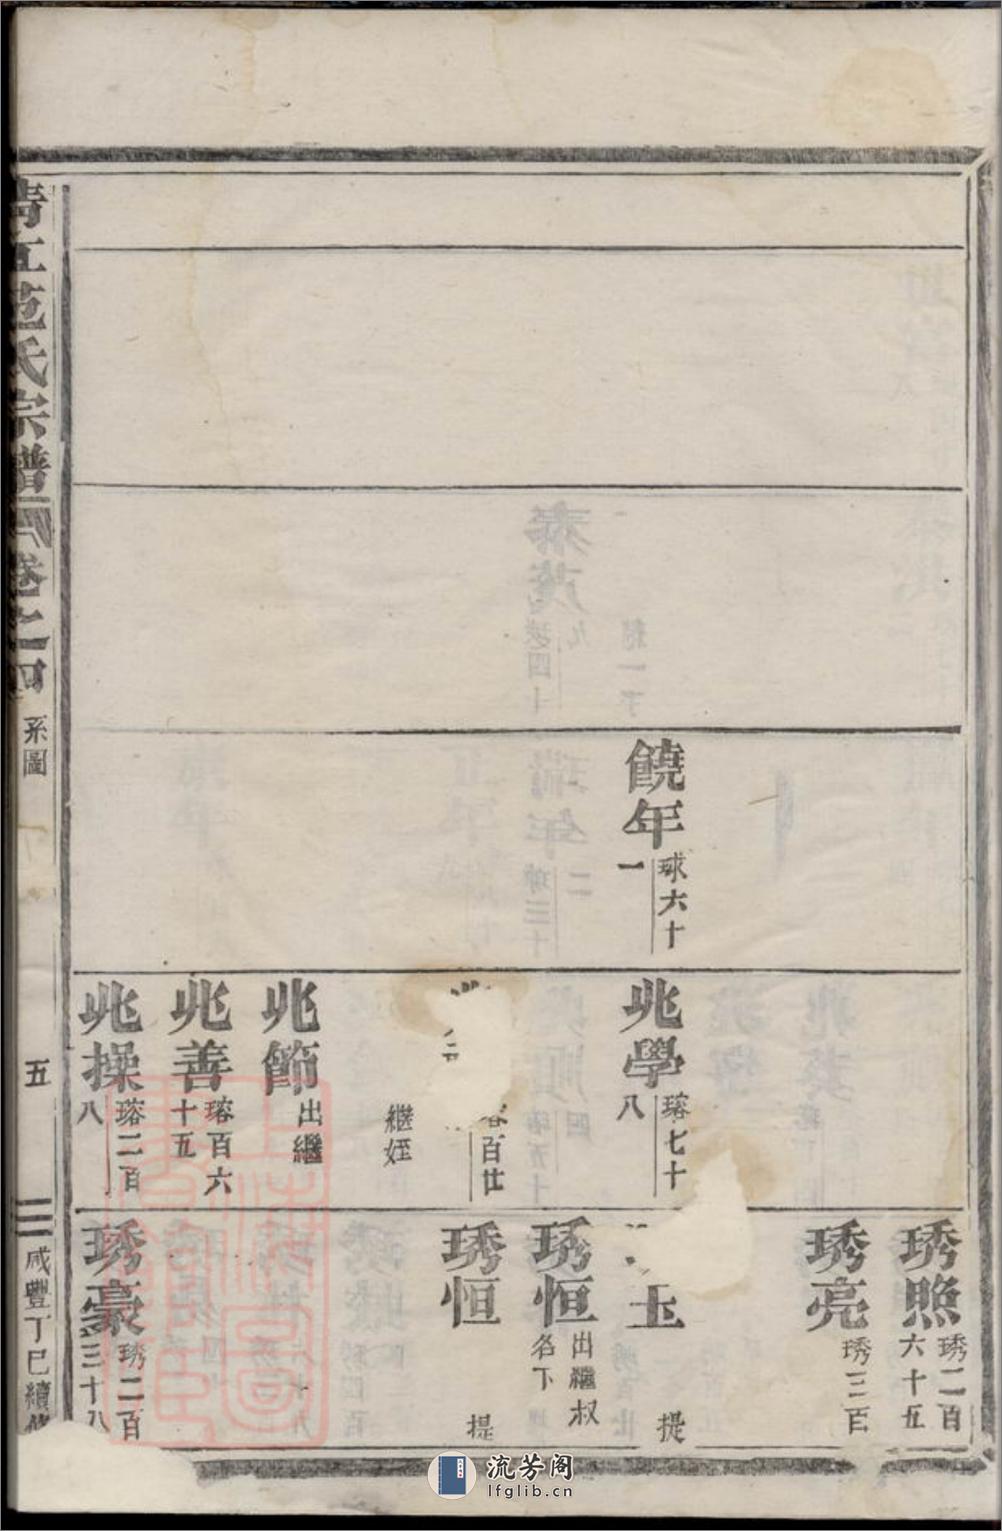 饒年
球六十
一
兆學
瑢七十
八
百廿
繼姪
兆節
出繼
兆善
瑢百六
十五
兆操
瑢二百
八
琇照
琇二百
六十五
琇亮
琇三百
玉
提
琇恒
出繼叔
名下
琇恒
提
琇豪
琇二百
三十八
清江范氏宗譜
卷之四
系圖
五
咸豐丁巳續修
流芳阁
lfglib.cn